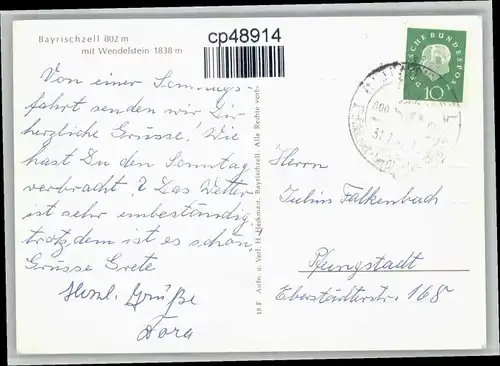 Bayrischzell 802 m
mit Wendelstein 1838 m
cp48914
Von einer Sonntags-
fahrt senden wir Dir
herzliche Grüsse! Wie
hast Du den Sonntag
verbracht? Das Wetter
ist sehr unbeständig,
trotzdem ist es schön.
Grüsse Grete
Herzl. Grüße
Dora
18 F Aufn. u. Verl. H. Heckmair, Bayrischzell. Alle Rechte vorb.
DEUTSCHE BUNDESPOST
10
31.7.
Herrn
Julius Falkenbach
Pfungstadt
Eberstädterstr. 168